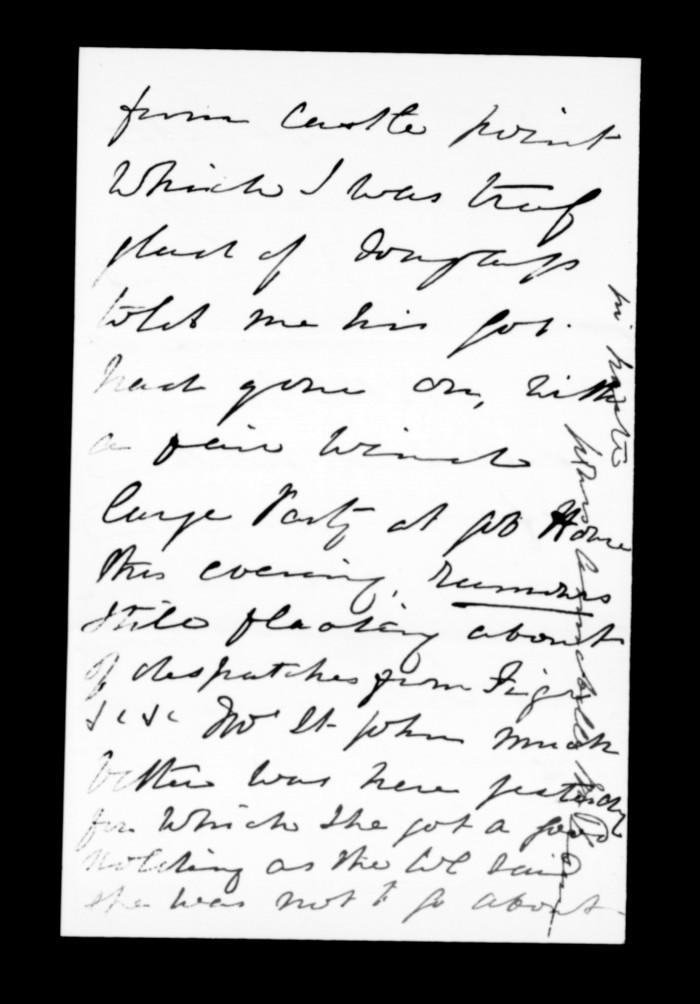 from Castle point
Which I was truly
glad of Douglass
told me his gov.
had gone on, with
a fair Wind
large Party at Gt House
this evening, rumours
still floating about
of despatches from Fiji
&c &c Mrs St John much
better was here yesterday
for Which She got a good
scolding as the Col said
she was not to go about
in haste
yours